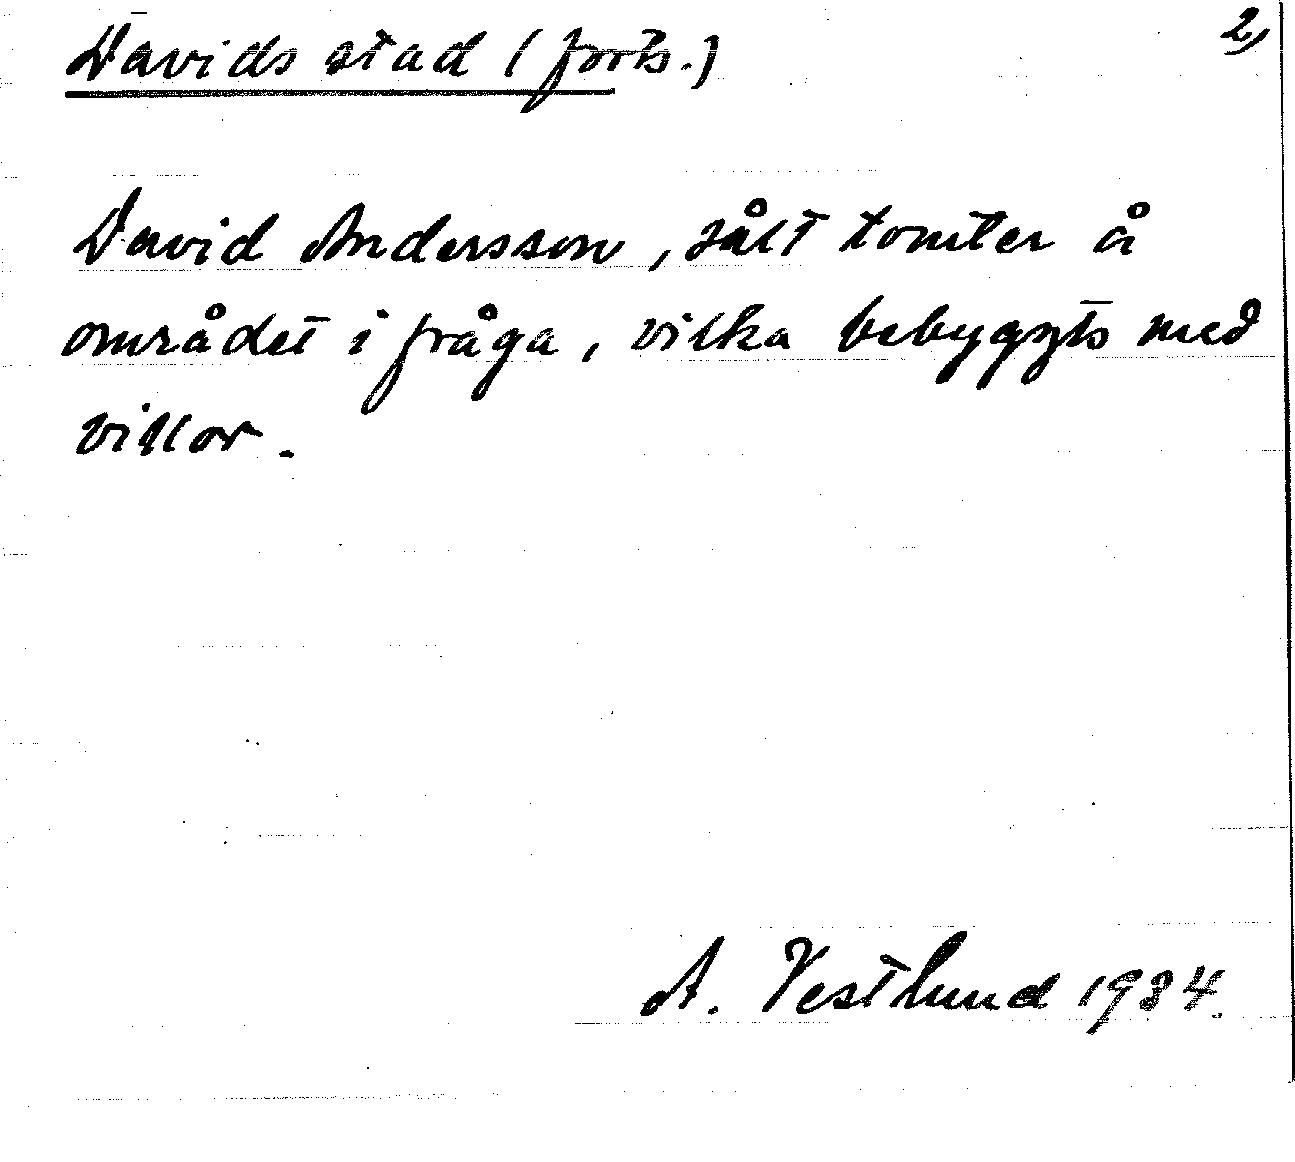 Davids stad (forts.) 2,
David Andersson, sålt tomter å
området i fråga, vilka bebyggts med
villor.
A. Vestlund 1934.